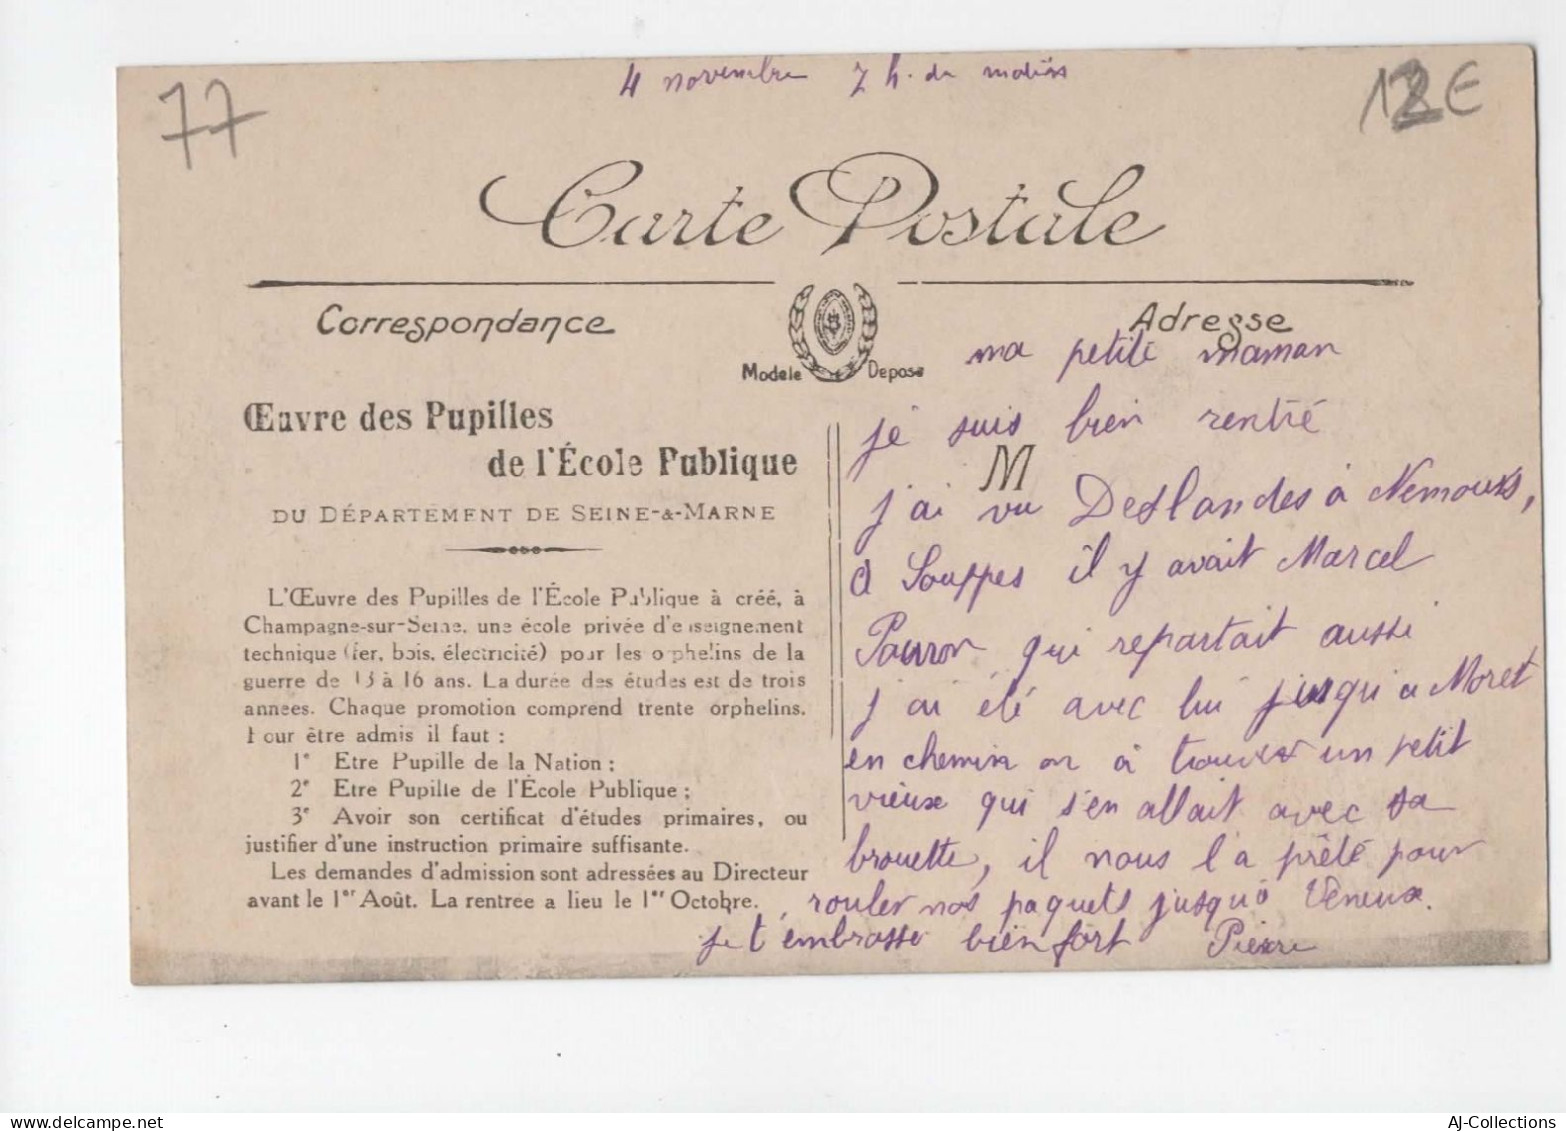 4 novembre 7 h. du matin
77
12€
Carte Postale
Correspondance
Adresse
Modèle Déposé
Œuvre des Pupilles
de l'École Publique
DU DÉPARTEMENT DE SEINE-&-MARNE
L'Œuvre des Pupilles de l'École Publique à créé, à
Champagne-sur-Seine, une école privée d'enseignement
technique (fer, bois, électricité) pour les orphelins de la
guerre de 13 à 16 ans. La durée des études est de trois
années. Chaque promotion comprend trente orphelins.
Pour être admis il faut :
1° Etre Pupille de la Nation ;
2° Etre Pupille de l'École Publique ;
3° Avoir son certificat d'études primaires, ou
justifier d'une instruction primaire suffisante.
Les demandes d'admission sont adressées au Directeur
avant le 1er Août. La rentrée a lieu le 1er Octobre.
ma petite maman
je suis bien rentré
M
j'ai vu Deslandes à Nemours,
à Souppes il y avait Marcel
Pouron qui repartait aussi
j'ai été avec lui jusqu'a Moret
en chemin on à trouver un petit
vieux qui s'en allait avec sa
brouette, il nous l'a prêté pour
rouler nos paquets jusqu'à Veneux.
je t'embrasse bien fort Pierre
AJ-Collections